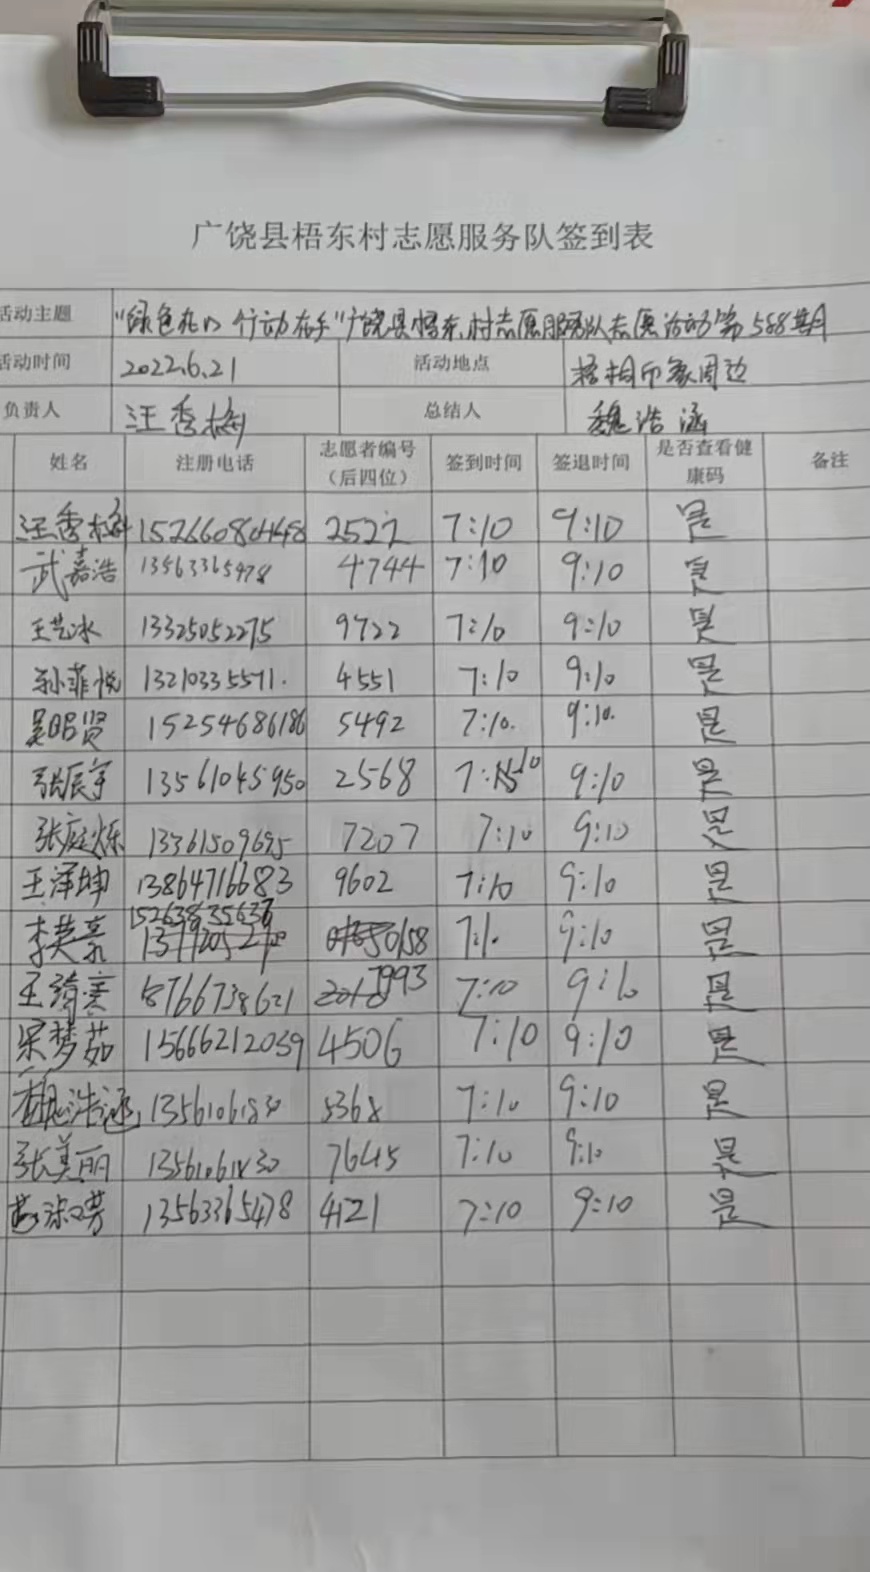 广饶县梧东村志愿服务队签到表
活动主题 "绿色 行动在手"广饶县梧东村志愿服务队志愿活动第588期
活动时间 2022.6.21 活动地点 梧桐印象周边
负责人 汪秀梅 总结人 魏浩涵
姓名 注册电话 志愿者编号(后四位) 签到时间 签退时间 是否查看健康码 备注
汪秀梅 15266080448 2522 7:10 9:10 是
武嘉浩 13563365478 4744 7:10 9:10 是
王艺冰 13325052275 9722 7:10 9:10 是
孙菲悦 13210335571. 4551 7:10 9:10 是
吴明贤 15254686186 5492 7:10. 9:10. 是
张辰宇 13561045950 2568 7:10 9:10 是
张庭烁 13361509695 7207 7:10 9:10 是
王泽坤 13864716683 9602 7:10 9:10 是
李英豪 15263835637 0158 7:10 9:10 是
王 18766738621 7993 7:10 9:10 是
梁梦茹 15666212039 4506 7:10 9:10 是
浩涵 13561061830 5368 7:10 9:10 是
张美丽 13561061830 7645 7:10 9:10 是
13563365478 4121 7:10 9:10 是